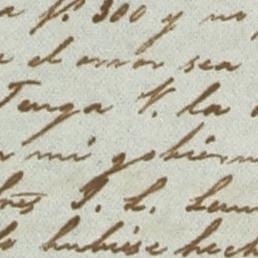 a V. 300 y no
el error sea
Tenga V. la
mi gobierno
P. L.
lo hubiese hech